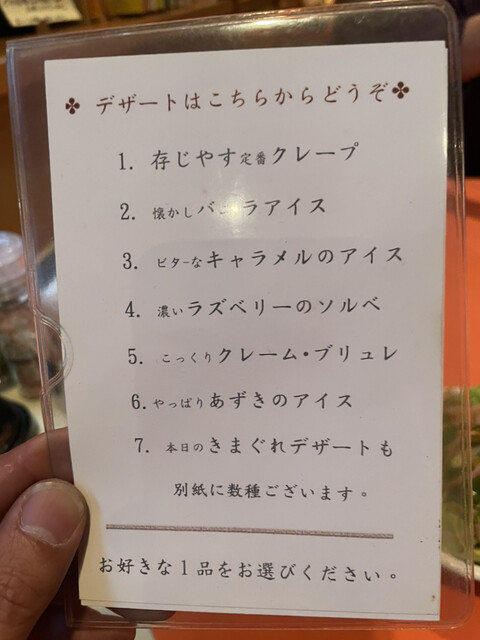 デザートはこちらからどうぞ
1. 存じやす定番クレープ
2. 懐かしバニラアイス
3. ビターなキャラメルのアイス
4. 濃いラズベリーのソルベ
5. こっくりクレーム・ブリュレ
6. やっぱりあずきのアイス
7. 本日のきまぐれデザートも
別紙に数種ございます。
お好きな1品をお選びください。